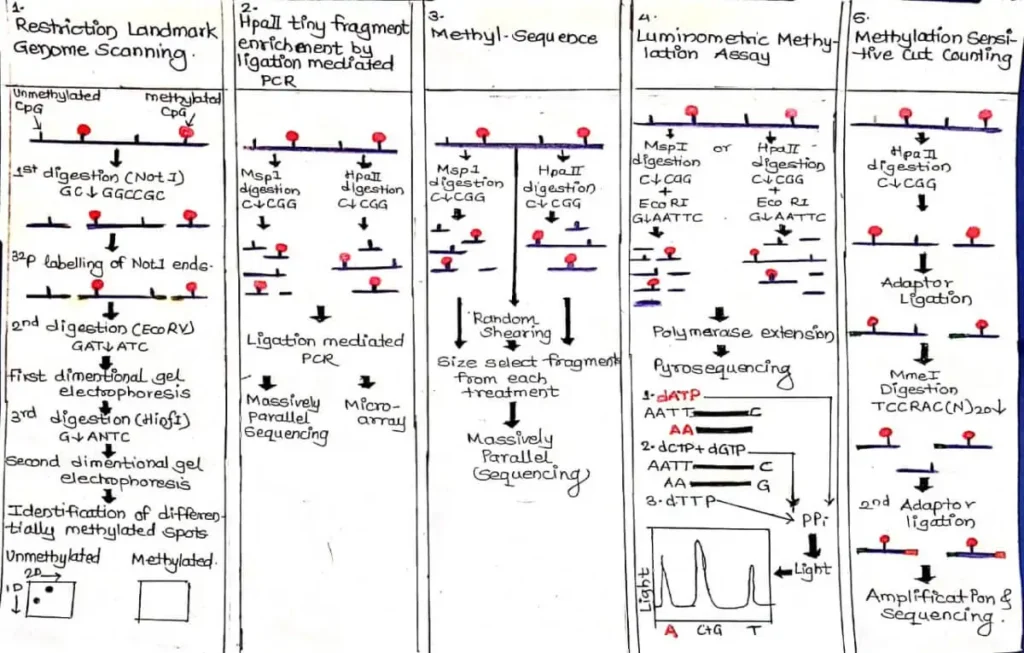 1.
Restriction Landmark
Genome Scanning.
Unmethylated
CpG
methylated
CpG
1st digestion (Not I)
GC↓GGCCGC
32p labelling of Not1 ends.
2nd digestion (EcoRV)
GAT↓ATC
First dimentional gel
electrophoresis
3rd digestion (HinfI)
G↓ANTC
Second dimentional gel
electrophoresis
Identification of differen-
tially methylated spots
Unmethylated
Methylated.
2D
1D
2.
HpaII tiny fragment
enrichment by
ligation mediated
PCR
Msp1
digestion
C↓CGG
HpaII
digestion
C↓CGG
Ligation mediated
PCR
Massively
Parallel
Sequencing
Micro-
array
3.
Methyl-Sequence
Msp1
digestion
C↓CGG
HpaII
digestion.
C↓CGG
Random
Shearing
Size select fragments
from each
treatment
Massively
Parallel
(Sequencing)
4.
Luminometric Methy-
lation Assay
MspI
digestion
C↓CGG
+
Eco RI
G↓AATTC
or
HpaII
digestion
C↓CGG
+
Eco RI
G↓AATTC
Polymerase extension
Pyrosequencing
1. dATP
AATT C
AA
2. dCTP+dGTP
AATT C
AA G
3. dTTP
PPi
Light
Light
A C+G T
5.
Methylation Sensi-
-tive Cut Counting
HpaII
digestion
C↓CGG
Adaptor
Ligation
MmeI
Digestion
TCCRAC(N)20↓
2nd Adaptor
ligation
Amplification &
Sequencing.